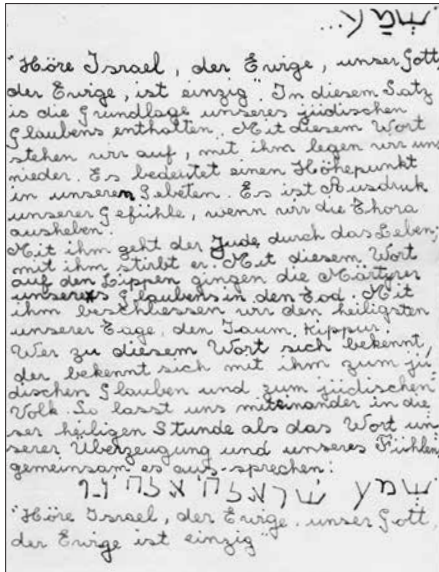 שמע...
"Höre Israel, der Ewige, unser Gott,
der Ewige, ist einzig". In diesem Satz
is die Grundlage unseres jüdischen
Glaubens enthalten. Mit diesem Wort
stehen wir auf, mit ihm legen wir uns
nieder. Es bedeutet einen Höhepunkt
in unseren Gebeten. Es ist Ausdruk
unserer Gefühle, wenn wir die Thora
ausheben.
Mit ihm geht der Jude durch das Leben,
mit ihm stirbt er. Mit diesem Wort
auf den Lippen gingen die Märtyrer
unseres Glaubens in den Tod. Mit
ihm beschliessen wir den heiligsten
unserer Tage, den Jaum Kippur.
Wer zu diesem Wort sich bekennt,
der bekennt sich mit ihm zum jü-
dischen Glauben und zum jüdischen
Volk. So lasst uns miteinander in die
ser heiligen Stunde als das Wort un
serer Überzeugung und unseres Fühlens
gemeinsam es aus-sprechen:
שמע
"Höre Israel, der Ewige, unser Gott
der Ewige ist einzig"